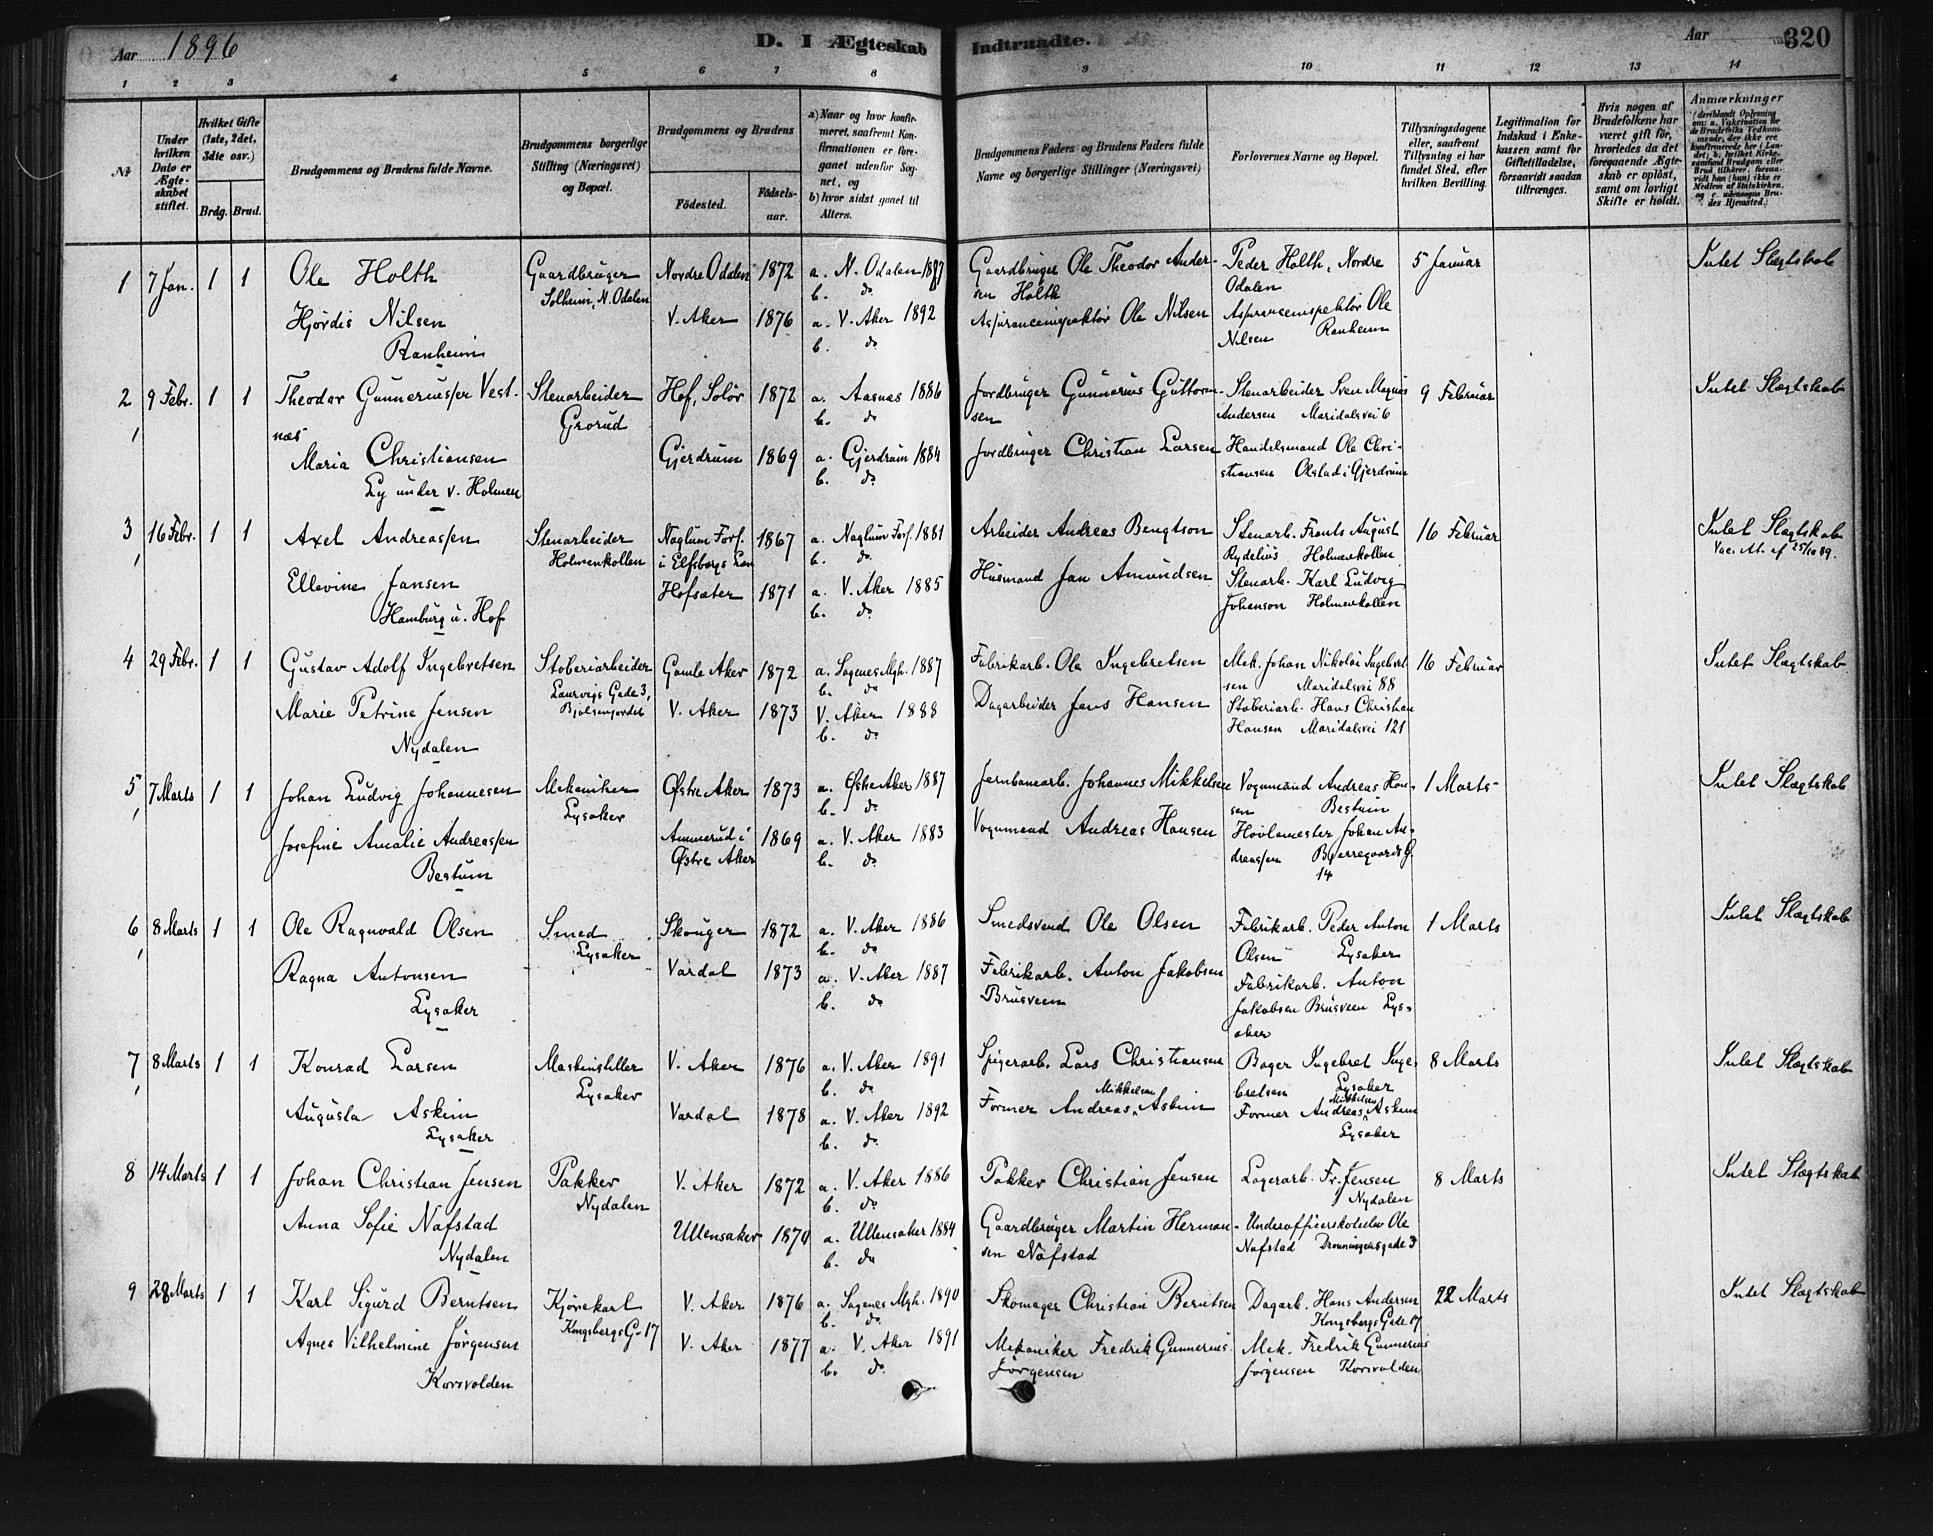 Aar 1896
D. I Ægteskab Indtraadte.
Aar 320
1 2 3 4 5 6 7 8 9 10 11 12 13 14
№
Under hvilken Dato er Ægteskabet stiftet.
Hvilket Gifte (1ste, 2det, 3die osv.)
Brdg. Brud.
Brudgommens og Brudens fulde Navne.
Brudgommens borgerlige Stilling (Næringsvei) og Bopæl.
Brudgommens og Brudens
Fødested.
Fødselsaar.
a) Naar og hvor konfirmeret, saafremt Konfirmationen er foregaaet udenfor Sognet, og
b) hvor sidst gaaet til Alters.
Brudgommens Faders og Brudens Faders fulde Navne og borgerlige Stillinger (Næringsvei)
Forlovernes Navne og Bopæl.
Tillysningsdagene eller, saafremt Tillysning ei har fundet Sted, efter hvilken Bevilling.
Legitimation for Indskud i Enkekassen samt for Giftetilladelse, forsaavidt saadan tiltrænges.
Hvis nogen af Brudefolkene har været gift før, hvorledes da det foregaaende Ægteskab er opløst, samt om lovligt Skifte er holdt.
Anmærkninger (deriblandt Oplysning om: a. Vakcination for de Brudefolks Vedkommende, der ikke ere konfirmerede her i Landet; b. hvilket Kirkesamfund Brudgom eller Brud tilhører, forsaavidt han (hun) ikke er Medlem af Statskirken, og c. udensogns Brudes Hjemsted.)
1 7 Jan. 1 1
Ole Holth
Gaardbruger
Solheim, N. Odalen
Nordre Odalen 1872
a. N. Odalen 1887
b. do
Gaardbruger Ole Theodor Andersen Holth
Peder Holth, Nordre Odalen
5 Januar
Intet Slægtskab
Hjørdis Nilsen
Ranheim
V. Aker 1876
a. V. Aker 1892
b. do
Assuranceinspektør Ole Nilsen
Assuranceinspektør Ole
Nilsen Ranheim
2 9 Febr. 1 1
Theodor Gunneriussen Vestnæs
Stenarbeider
Grorud
Hof, Solør 1872
a. Aasnæs 1886
b. do
Jordbruger Gunnerius Guttormsen
Stenarbeider Sven Magnus
Andersen Maridalsvei 6
9 Februar
Intet Slægtskab
Maria Christiansen
Ly under v. Holmen
Gjerdrum 1869
a. Gjerdrum 1884
b. do
Jordbruger Christian Larsen
Handelsmand Ole Christiansen Olstad i Gjerdrum
3 16 Febr. 1 1
Axel Andreassen
Stenarbeider
Holmenkollen
Naglum Fors.
i Elfsborgs Län 1867
a. Naglum Fors. 1881
b. do
Arbeider Andreas Bengtson
Stenarb. Frants August
Rydelius Holmenkollen
16 Februar
Intet Slægtskab
Vac. At. af 25/10 89.
Ellevine Jansen
Hamburg u. Hof
Hofsæter 1871
a. V. Aker 1885
b. do
Husmand Jan Amundsen
Stenarb. Karl Ludvig
Johanson Holmenkollen
4 29 Febr. 1 1
Gustav Adolf Ingebretsen
Støberiarbeider
Laurvigs Gade 3,
Bjølsenjordet
Gamle Aker 1872
a. Sagenes Mgh. 1887
b. do
Fabrikarb. Ole Ingebretsen
Mek. Johan Nikolai Ingebretsen Maridalsvei 88
16 Februar
Intet Slægtskab
Marie Petrine Jensen
Nydalen
V. Aker 1873
V. Aker 1888
b. do
Dagarbeider Jens Hansen
Støberiarb. Hans Christian
Hansen Maridalsvei 121
5 7 Marts 1 1
Johan Ludvig Johannesen
Mekaniker
Lysaker
Østre Aker 1873
a. Østre Aker 1887
b. do
Jernbanearb. Johannes Mikkelsen
Vognmand Andreas Hansen Bestum
1 Marts
Intet Slægtskab
Josefine Amalie Andreassen
Bestum
Ammerud i
Østre Aker 1869
a. V. Aker 1883
b. do
Vognmand Andreas Hansen
Høvlemester Johan Andreassen Bjerregaards G.
14
6 8 Marts 1 1
Ole Ragnvald Olsen
Smed
Lysaker
Skouger 1872
a. V. Aker 1886
b. do
Smedsvend Ole Olsen
Fabrikarb. Peder Anton
Olsen Lysaker
1 Marts
Intet Slægtskab
Ragna Antonsen
Lysaker
Vardal 1873
a. V. Aker 1887
b. do
Fabrikarb. Anton Jakobsen
Brusveen
Fabrikarb. Anton
Jakobsen Brusveen Lysaker
7 8 Marts 1 1
Konrad Larsen
Maskinstiller
Lysaker
V. Aker 1876
a. V. Aker 1891
b. do
Spigerarb. Lars Christiansen
Bager Ingebret Ingebretsen Lysaker
8 Marts
Intet Slægtskab
Augusta Askim
Lysaker
Vardal 1878
a. V. Aker 1892
b. do
Former Andreas Mikkelsen Askim
Former Andreas Mikkelsen Askim
Lysaker
8 14 Marts 1 1
Johan Christian Jensen
Pakker
Nydalen
V. Aker 1872
a. V. Aker 1886
b. do
Pakker Christian Jensen
Lagerarb. Fr. Jensen
Nydalen
8 Marts
Intet Slægtskab
Anna Sofie Nafstad
Nydalen
Ullensaker 1870
a. Ullensaker 1884
b. do
Gaardbruger Martin Hermansen Nafstad
Underofficerskoleelev Ole
Nafstad Dronningensgade 3
9 28 Marts 1 1
Karl Sigurd Berntsen
Kjørekarl
Kongsbergs G. 17
V. Aker 1876
a. Sagenes Mgh. 1890
b. do
Skomager Christian Berntsen
Dagarb. Hans Andersen
Kongsbergs Gade 17
22 Marts
Intet Slægtskab
Agnes Vilhelmine Jørgensen
Korsvolden
V. Aker 1877
a. V. Aker 1891
b. do
Mekaniker Fredrik Gunnerius
Jørgensen
Mek. Fredrik Gunnerius
Jørgensen Korsvolden